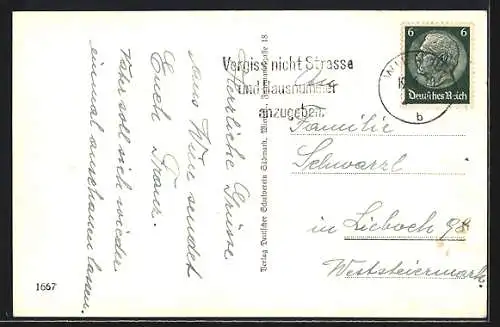 Herrliche Grüsse
aus Wien sendet
Euch Franz.
Vater soll sich wieder
einmal anschauen lassen.
1667
Verlag Deutscher Schulverein Südmark, Wien
18.
Vergiss nicht Strasse
und Hausnummer
anzugeben.
6 6
Deutsches Reich
b
An
Familie
Schwarzl
in Lieboch 98
Weststeiermark.